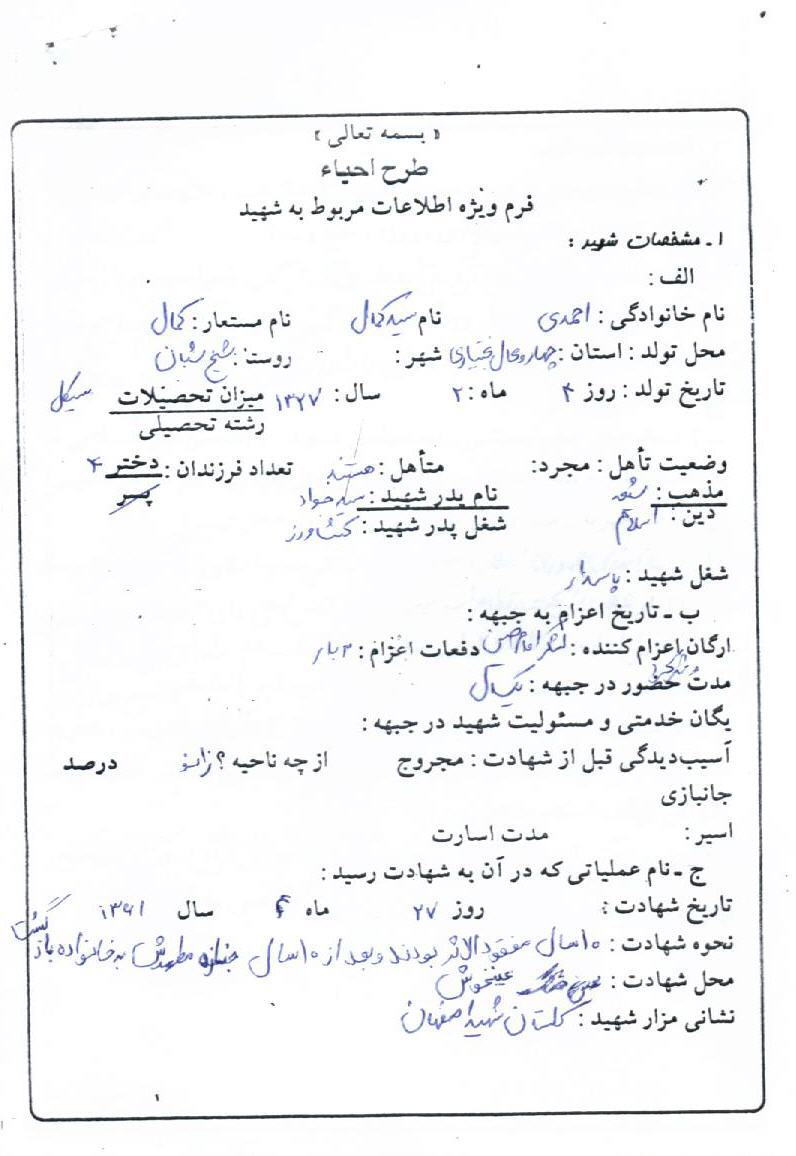 « بسمه تعالی »
طرح احیاء
فرم ویژه اطلاعات مربوط به شهید
۱ـ مشخصات شهید :
الف :
نام خانوادگی : احمدی نام سید کمال نام مستعار : کمال
محل تولد : استان : چهارمحال بختیاری شهر : روستا : شیخ شبان
تاریخ تولد : روز ۴ ماه : ۲ سال : ۱۳۲۷ میزان تحصیلات سیکل
رشته تحصیلی
وضعیت تأهل : مجرد: متأهل : هستند تعداد فرزندان : دختر ۴
پسر
مذهب : شیعه نام پدر شهید : سید جواد
دین : اسلام شغل پدر شهید : کشاورز
شغل شهید : پاسدار
ب ـ تاریخ اعزام به جبهه :
ارگان اعزام کننده : لشگر امام حسین دفعات اعزام : ۳ بار
مدت حضور در جبهه : یکسال
یگان خدمتی و مسئولیت شهید در جبهه :
آسیب‌دیدگی قبل از شهادت : مجروح از چه ناحیه ؟ زانو درصد
جانبازی
اسیر : مدت اسارت
ج ـ نام عملیاتی که در آن به شهادت رسید :
تاریخ شهادت : روز ۲۷ ماه سال ۱۳۶۱
نحوه شهادت : ۱۰ سال مفقودالاثر بودند و بعد از ۱۰ سال جنازه مطهرش به خانواده باز گشت
محل شهادت : عینخوش
نشانی مزار شهید : گلستان شهدا اصفهان
۱